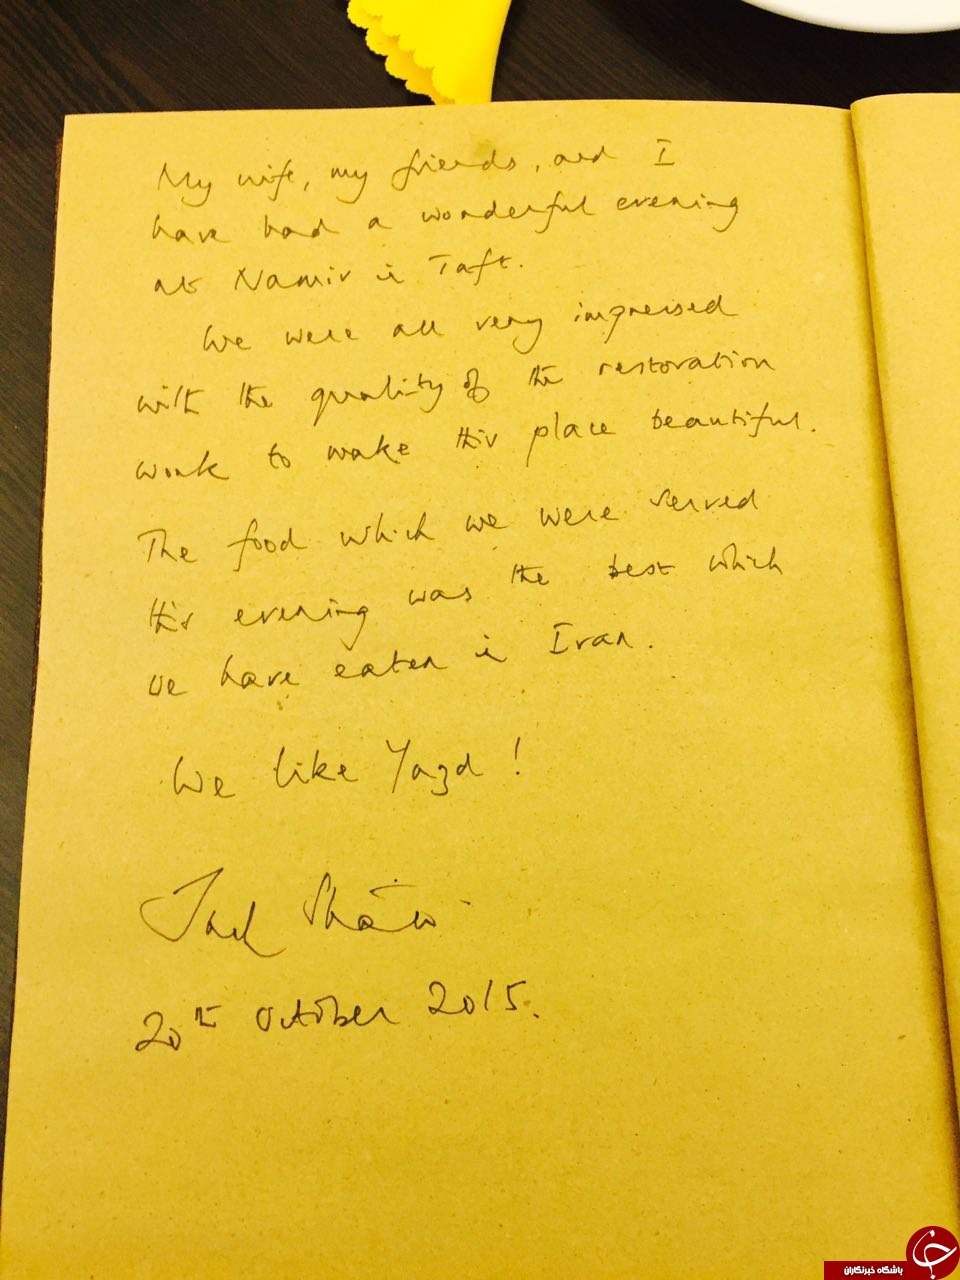 My wife, my friends, and I
have had a wonderful evening
at Namir in Taft.
We were all very impressed
with the quality of the restoration
work to make this place beautiful.
The food which we were served
this evening was the best which
we have eaten in Iran.
We like Yazd!
20th October 2015.
باشگاه خبرنگاران